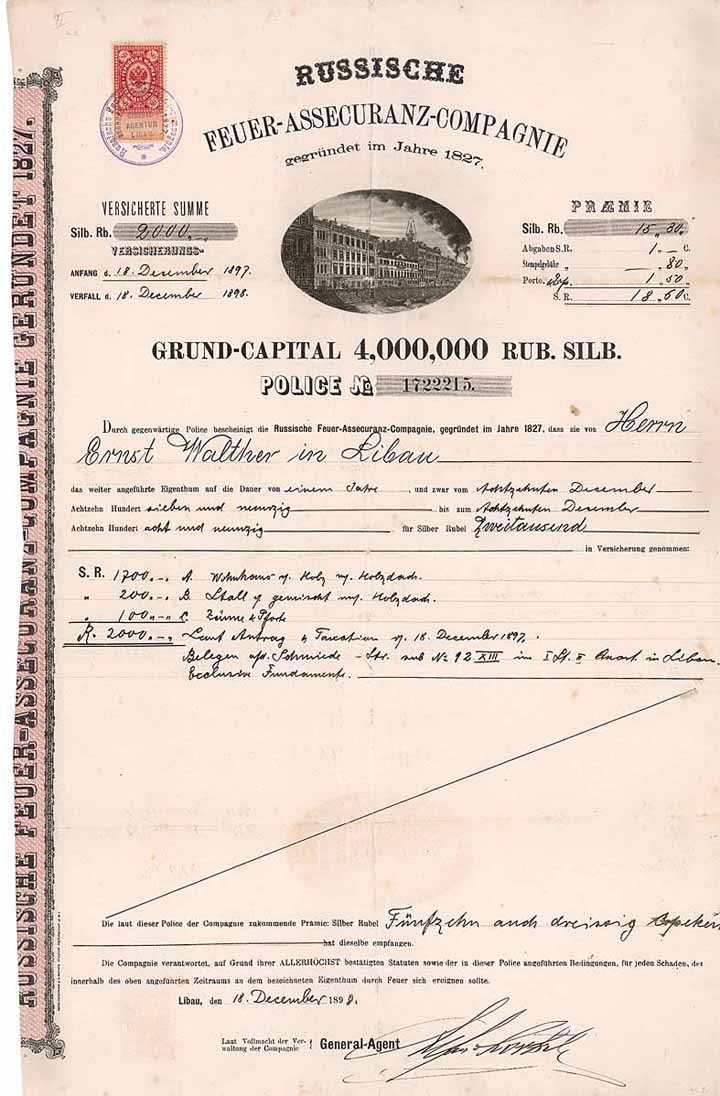 RUSSISCHE
FEUER-ASSECURANZ-COMPAGNIE
gegründet im Jahre 1827.
AGENTUR
LIBAU
VERSICHERTE SUMME
Silb. Rb. 2000.-.
VERSICHERUNGS-
ANFANG d. 18. December 1897.
VERFALL d. 18. December 1898.
PRÆMIE
Silb. Rb. 15 „ 30.
Abgaben S.R. 1. — C.
Stempelgebühr „ — „ 80 „
Porto. 1. 50 „
S. R. 18. 60 C.
GRUND-CAPITAL 4,000,000 RUB. SILB.
POLICE No 1722215.
Durch gegenwärtige Police bescheinigt die Russische Feuer-Assecuranz-Compagnie, gegründet im Jahre 1827, dass sie von Herrn
Ernst Walther in Libau
das weiter angeführte Eigenthum auf die Dauer von einem Jahre, und zwar vom Achtzehnten December
Achtzehn Hundert sieben und neunzig bis zum Achtzehnten December
Achtzehn Hundert acht und neunzig für Silber Rubel Zweitausend
in Versicherung genommen:
S. R. 1700.-. A. Wohnhaus v. Holz m. Holzdach.
„ 200.-. B. Stall v. gemischt m. Holzdach.
„ 100.-. C. Zäune & Pforte
R. 2000.-. Laut Antrag & Taxation v. 18. December 1897.
Belegen a/d. Schmiede-Str. sub No 92 XIII im I St. II Quart. in Libau.
Exclusive Fundamente.
Die laut dieser Police der Compagnie zukommende Prämie: Silber Rubel Fünfzehn und dreissig Kopeken
hat dieselbe empfangen.
Die Compagnie verantwortet, auf Grund ihrer ALLERHÖCHST bestätigten Statuten sowie der in dieser Police angeführten Bedingungen, für jeden Schaden, der
innerhalb des oben angeführten Zeitraums an dem bezeichneten Eigenthum durch Feuer sich ereignen sollte.
Libau, den 18. December 189
Laut Vollmacht der Ver-
waltung der Compagnie
General-Agent
RUSSISCHE FEUER-ASSECURANZ-COMPAGNIE GERÜNDET 1827.